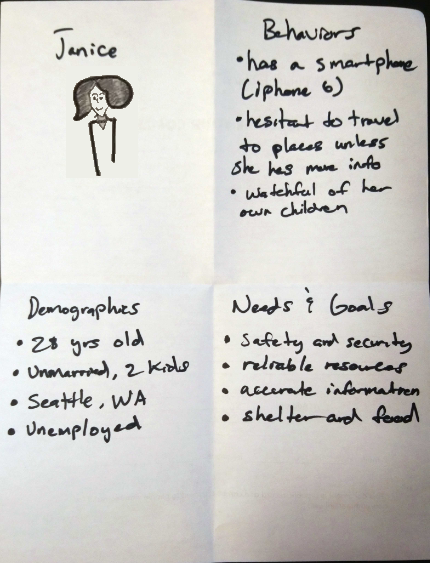 Janice
Behaviors
• has a smartphone
(iphone 6)
• hesitant to travel
to places unless
she has more info
• watchful of her
own children
Demographics
• 28 yrs old
• Unmarried, 2 kids
• Seattle, WA
• Unemployed
Needs & Goals
• Safety and security
• reliable resources
• accurate information
• shelter and food